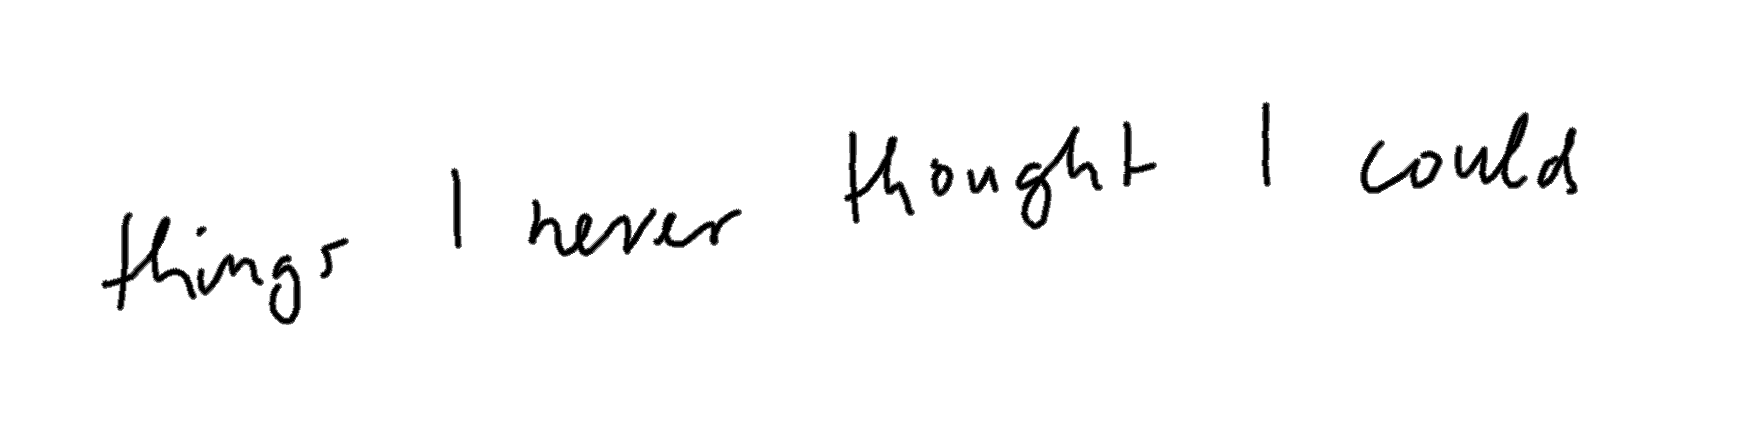 things I never thought I could